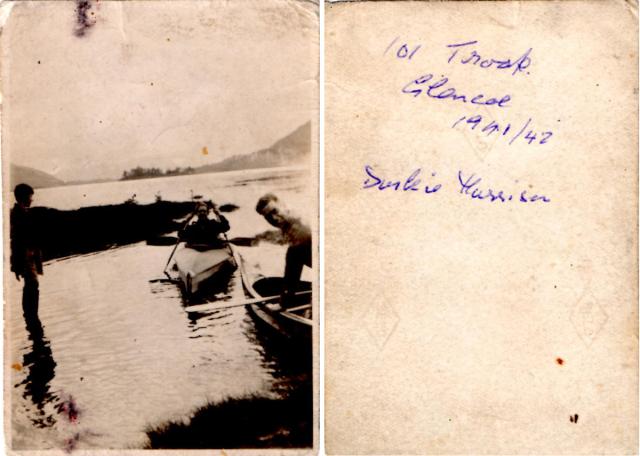 101 Troop.
Glencoe
1941/42
Duskie Harrison